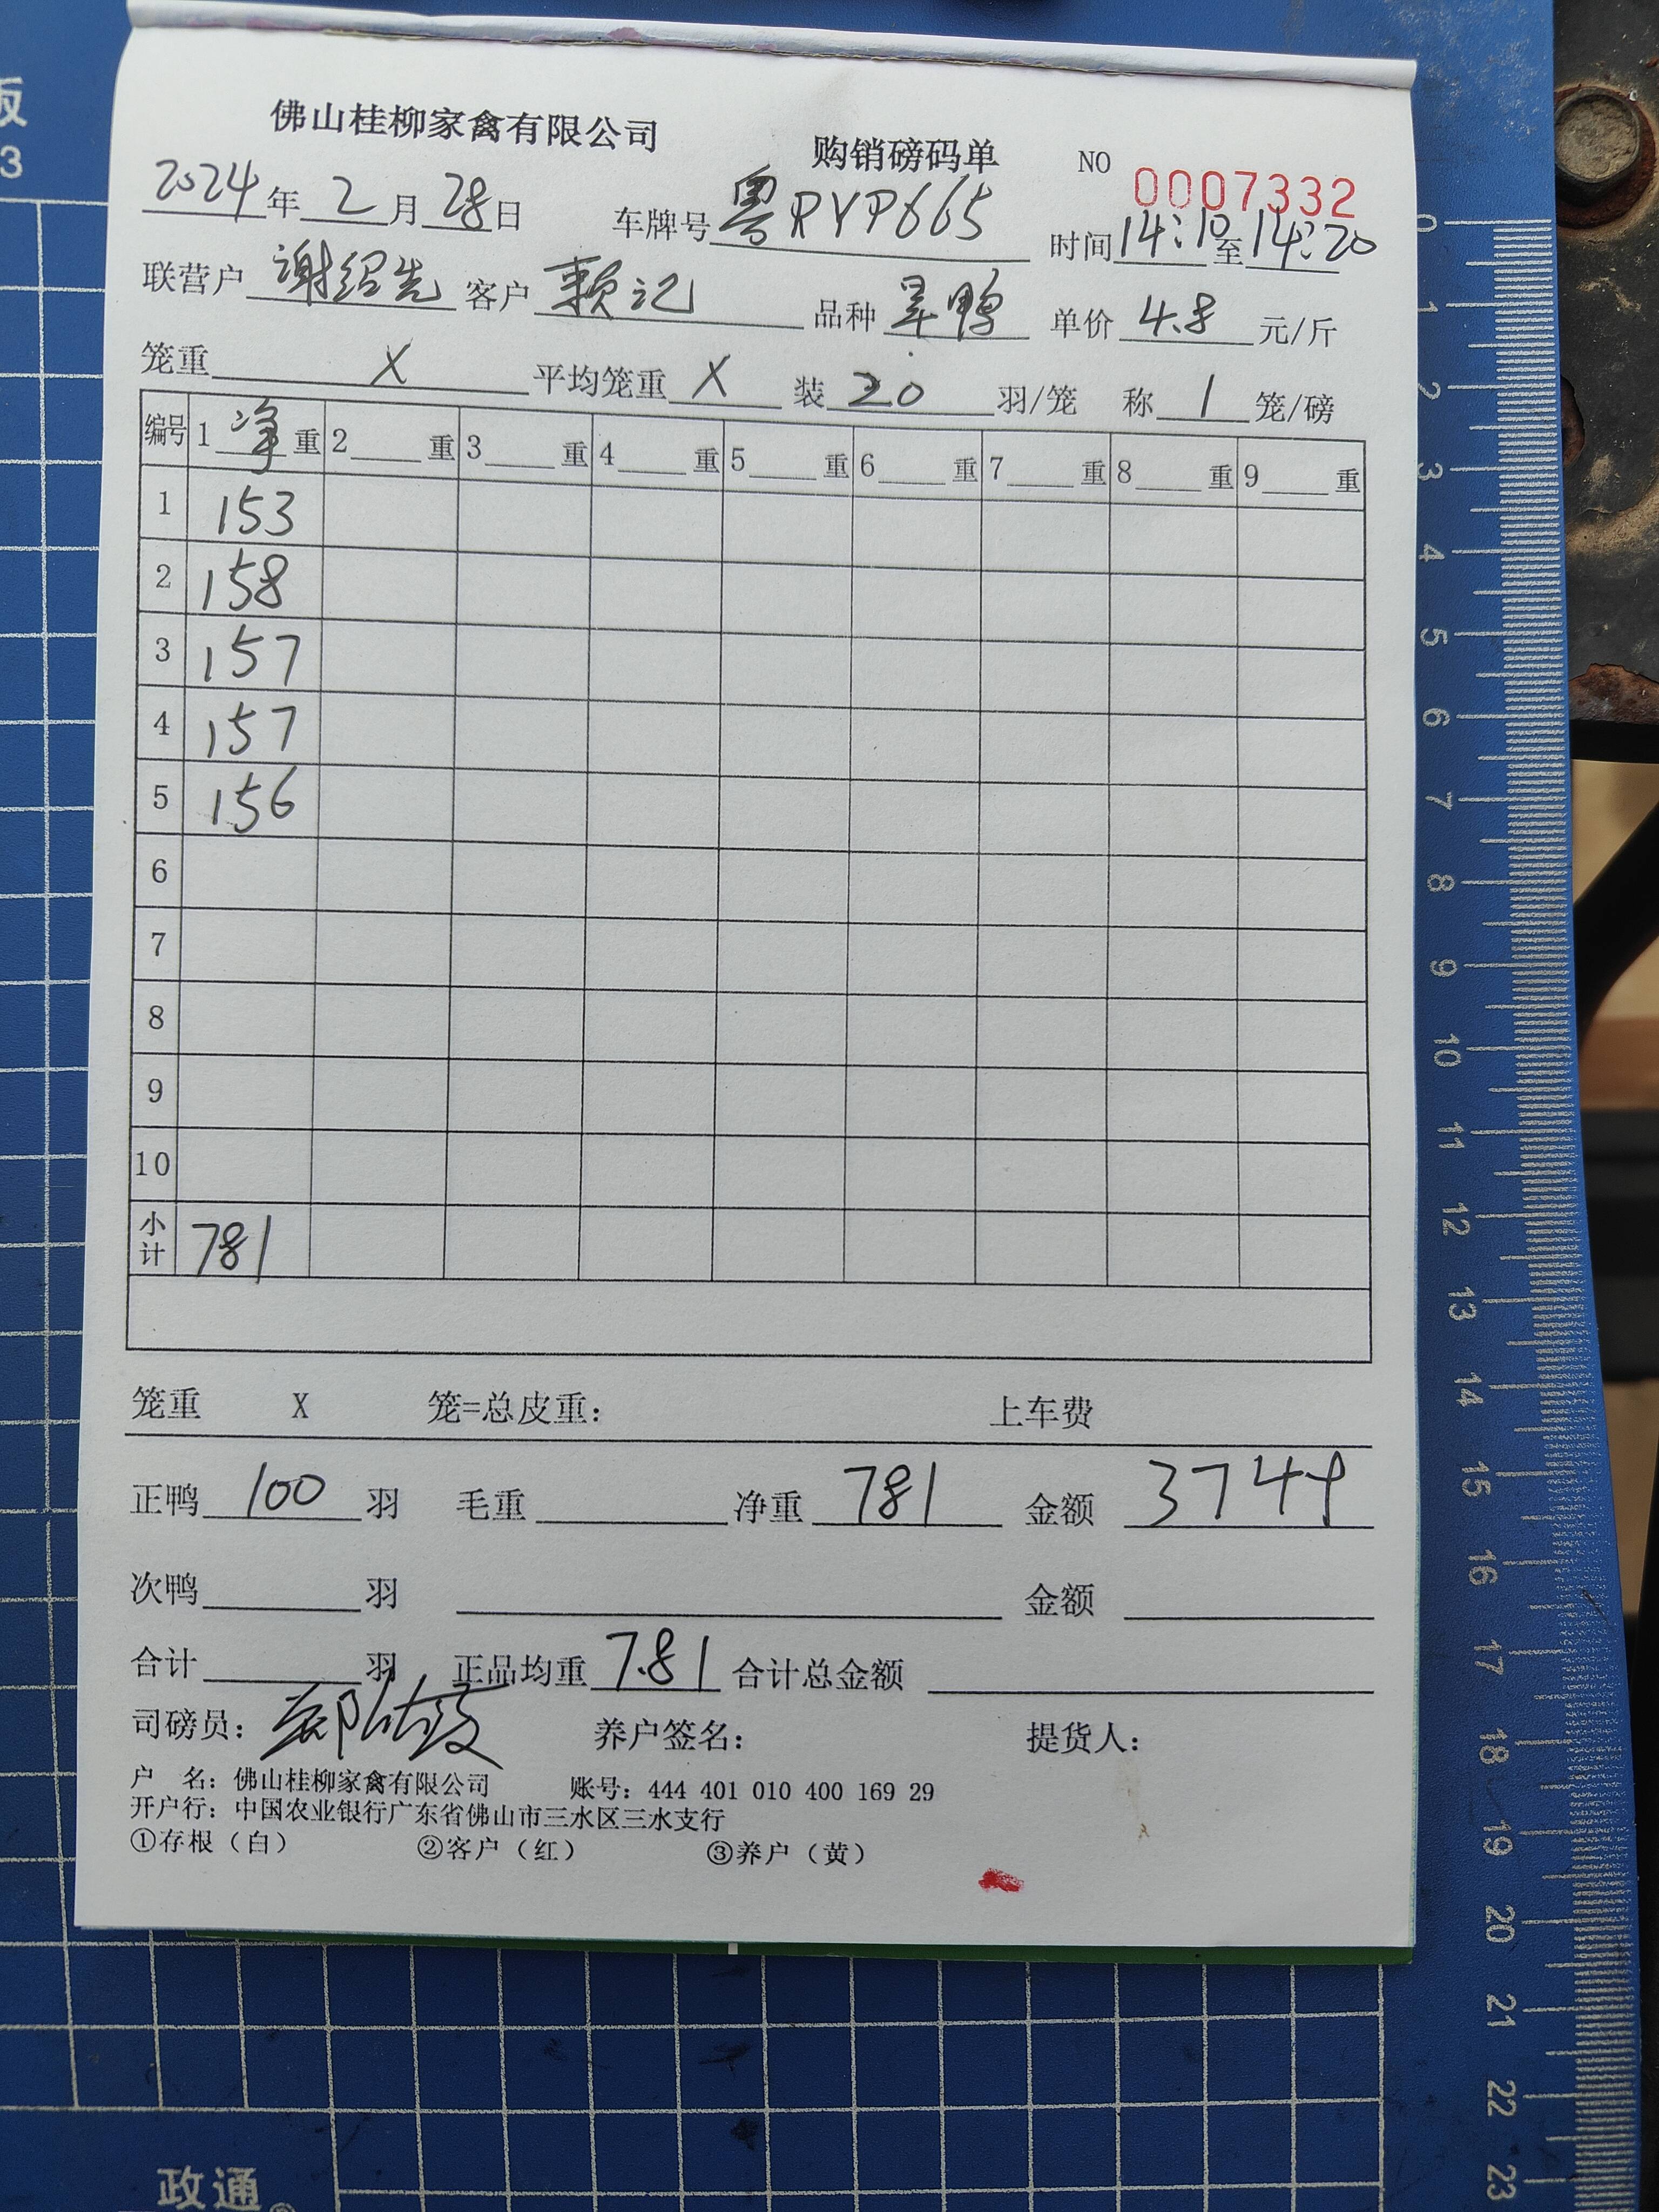 佛山桂柳家禽有限公司 购销磅码单 NO 0007332
2024年2月28日 车牌号 粤RYP665 时间14:10至14:20
联营户 谢绍先 客户 赖记 品种 旱鸭 单价 4.8 元/斤
笼重 X 平均笼重 X 装 20 羽/笼 称 1 笼/磅
编号 1 净 重 2 重 3 重 4 重 5 重 6 重 7 重 8 重 9 重
1 153
2 158
3 157
4 157
5 156
6
7
8
9
10
小计 781
笼重 X 笼=总皮重: 上车费
正鸭 100 羽 毛重 净重 781 金额 3744
次鸭 羽 金额
合计 羽 正品均重 7.81 合计总金额
司磅员: 养户签名: 提货人:
户 名: 佛山桂柳家禽有限公司 账号: 444 401 010 400 169 29
开户行: 中国农业银行广东省佛山市三水区三水支行
①存根（白） ②客户（红） ③养户（黄）
0
1
2
3
4
5
6
7
8
9
10
11
12
13
14
15
16
17
18
19
20
21
22
23
版
3
政通